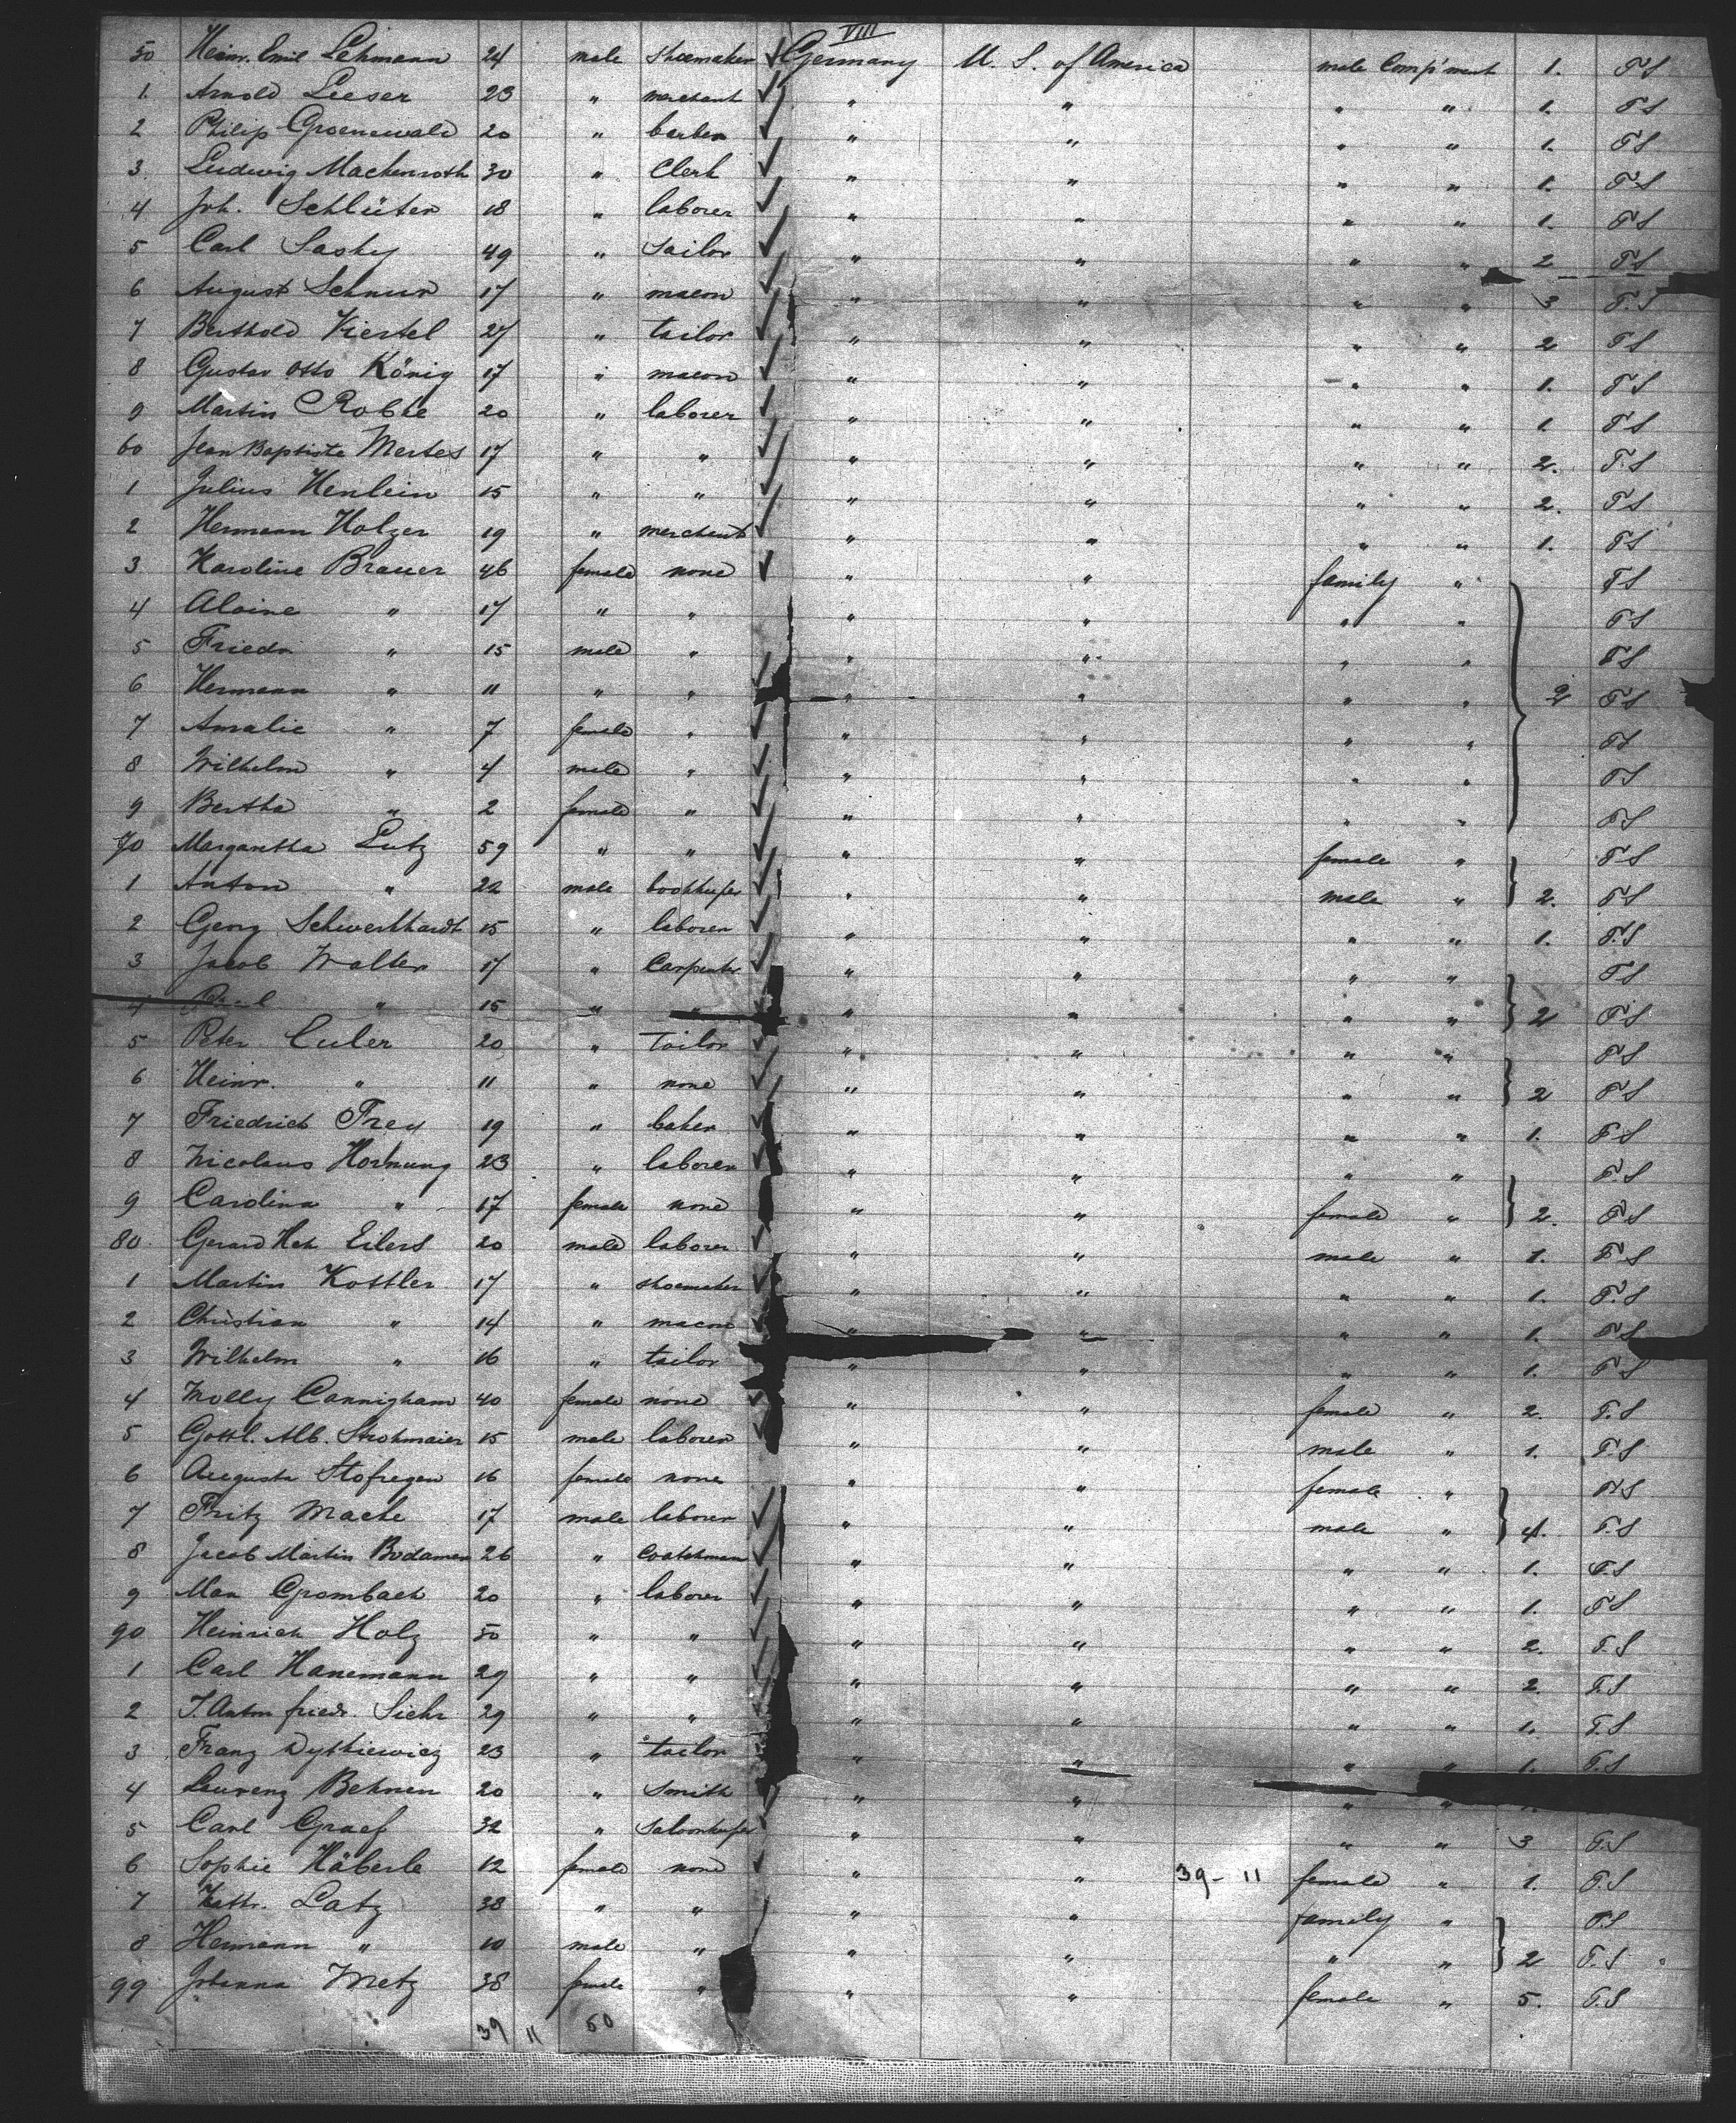 VIII
50 Heinr. Emil Lehmann 24 male shoemaker Germany U. S. of America male Comp'ment 1. T.S
1. Arnold Leeser 23 " merchant " " " " 1. T.S
2 Philip Groenewald 20 " barber " " " " 1. T.S
3 Ludwig Mackenroth 30 " Clerk " " " " 1. T.S
4 Joh. Schlüter 18 " laborer " " " " 1. T.S
5 Carl Sasky 49 " Sailor " " " " 2 T.S
6 August Schnur 17 " macon " " " " 3 T.S
7 Berthold Viertel 27 " tailor " " " " 2 T.S
8 Gustav Otto König 17 " macon " " " " 1. T.S
9 Martin Robke 20 " laborer " " " " 1. T.S
60 Jean Baptiste Mertes 17 " " " " " " 2. T.S
1 Julius Henlein 15 " " " " " " 2. T.S
2 Hermann Holzer 19 " merchant " " " " 1. T.S
3 Karoline Brauer 46 female none " " family " T.S
4 Aloine " 17 " " " " " " T.S
5 Friedr " 15 male " " " " " T.S
6 Hermann " 11 " " " " " " 2 T.S
7 Amalie " 7 female " " " " " T.S
8 Wilhelm " 4 male " " " " " T.S
9 Bertha " 2 female " " " " " T.S
70 Margaretha Lutz 59 " " " " female " T.S
1 Anton " 22 male bookkeper " " male " 2. T.S
2 Georg Schwerkhardt 15 " laborer " " " " 1. T.S
3 Jacob Walter 17 " Carpenter " " " " T.S
4 " 15 " " " " " " 2 T.S
5 Peter Euler 20 " Tailor " " " " T.S
6 Heinr. " 11 " none " " " " 2 T.S
7 Friedrich Frey 19 " baker " " " " 1. T.S
8 Nicolaus Hornung 23 " laborer " " " " T.S
9 Carolina " 17 female none " " female " 2. T.S
80 Gerard Hch Eilers 20 male laborer " " male " 1. T.S
1 Martin Kottler 17 " shoemaker " " " " 1. T.S
2 Christian " 14 " macon " " " " 1. T.S
3 Wilhelm " 16 " tailor " " " 1. T.S
4 Molly Cannigham 40 female none " " female " 2. T.S
5 Gottl. Alb. Strohmaier 15 male laborer " " male " 1. T.S
6 Augusta Stofregen 16 female none " " female " T.S
7 Fritz Macke 17 male laborer " " male " 4. T.S
8 Jacob Martin Bodamer 26 " Coatchman " " " " 1. T.S
9 Max Grombach 20 " laborer " " " " 1. T.S
90 Heinrich Holz 50 " " " " " " 2. T.S
1 Carl Hanemann 29 " " " " " " 2. T.S
2 J. Anton friedr. Siehr 29 " " " " " " 1. T.S
3 Franz Dythiewicz 23 " tailor " " " " 1. T.S
4 Laurenz Behnen 20 " Smith " " " "
5 Carl Graef 32 " Saloonkeper " " " " 3 T.S
6 Sophie Häberle 12 female none " " 39 - 11 female " 1. T.S
7 Kathr. Latz 38 " " " " family " T.S
8 Hermann " 10 male " " " " " 2 T.S
99 Johanna Metz 38 female " " " female " 5. T.S
39 11 50